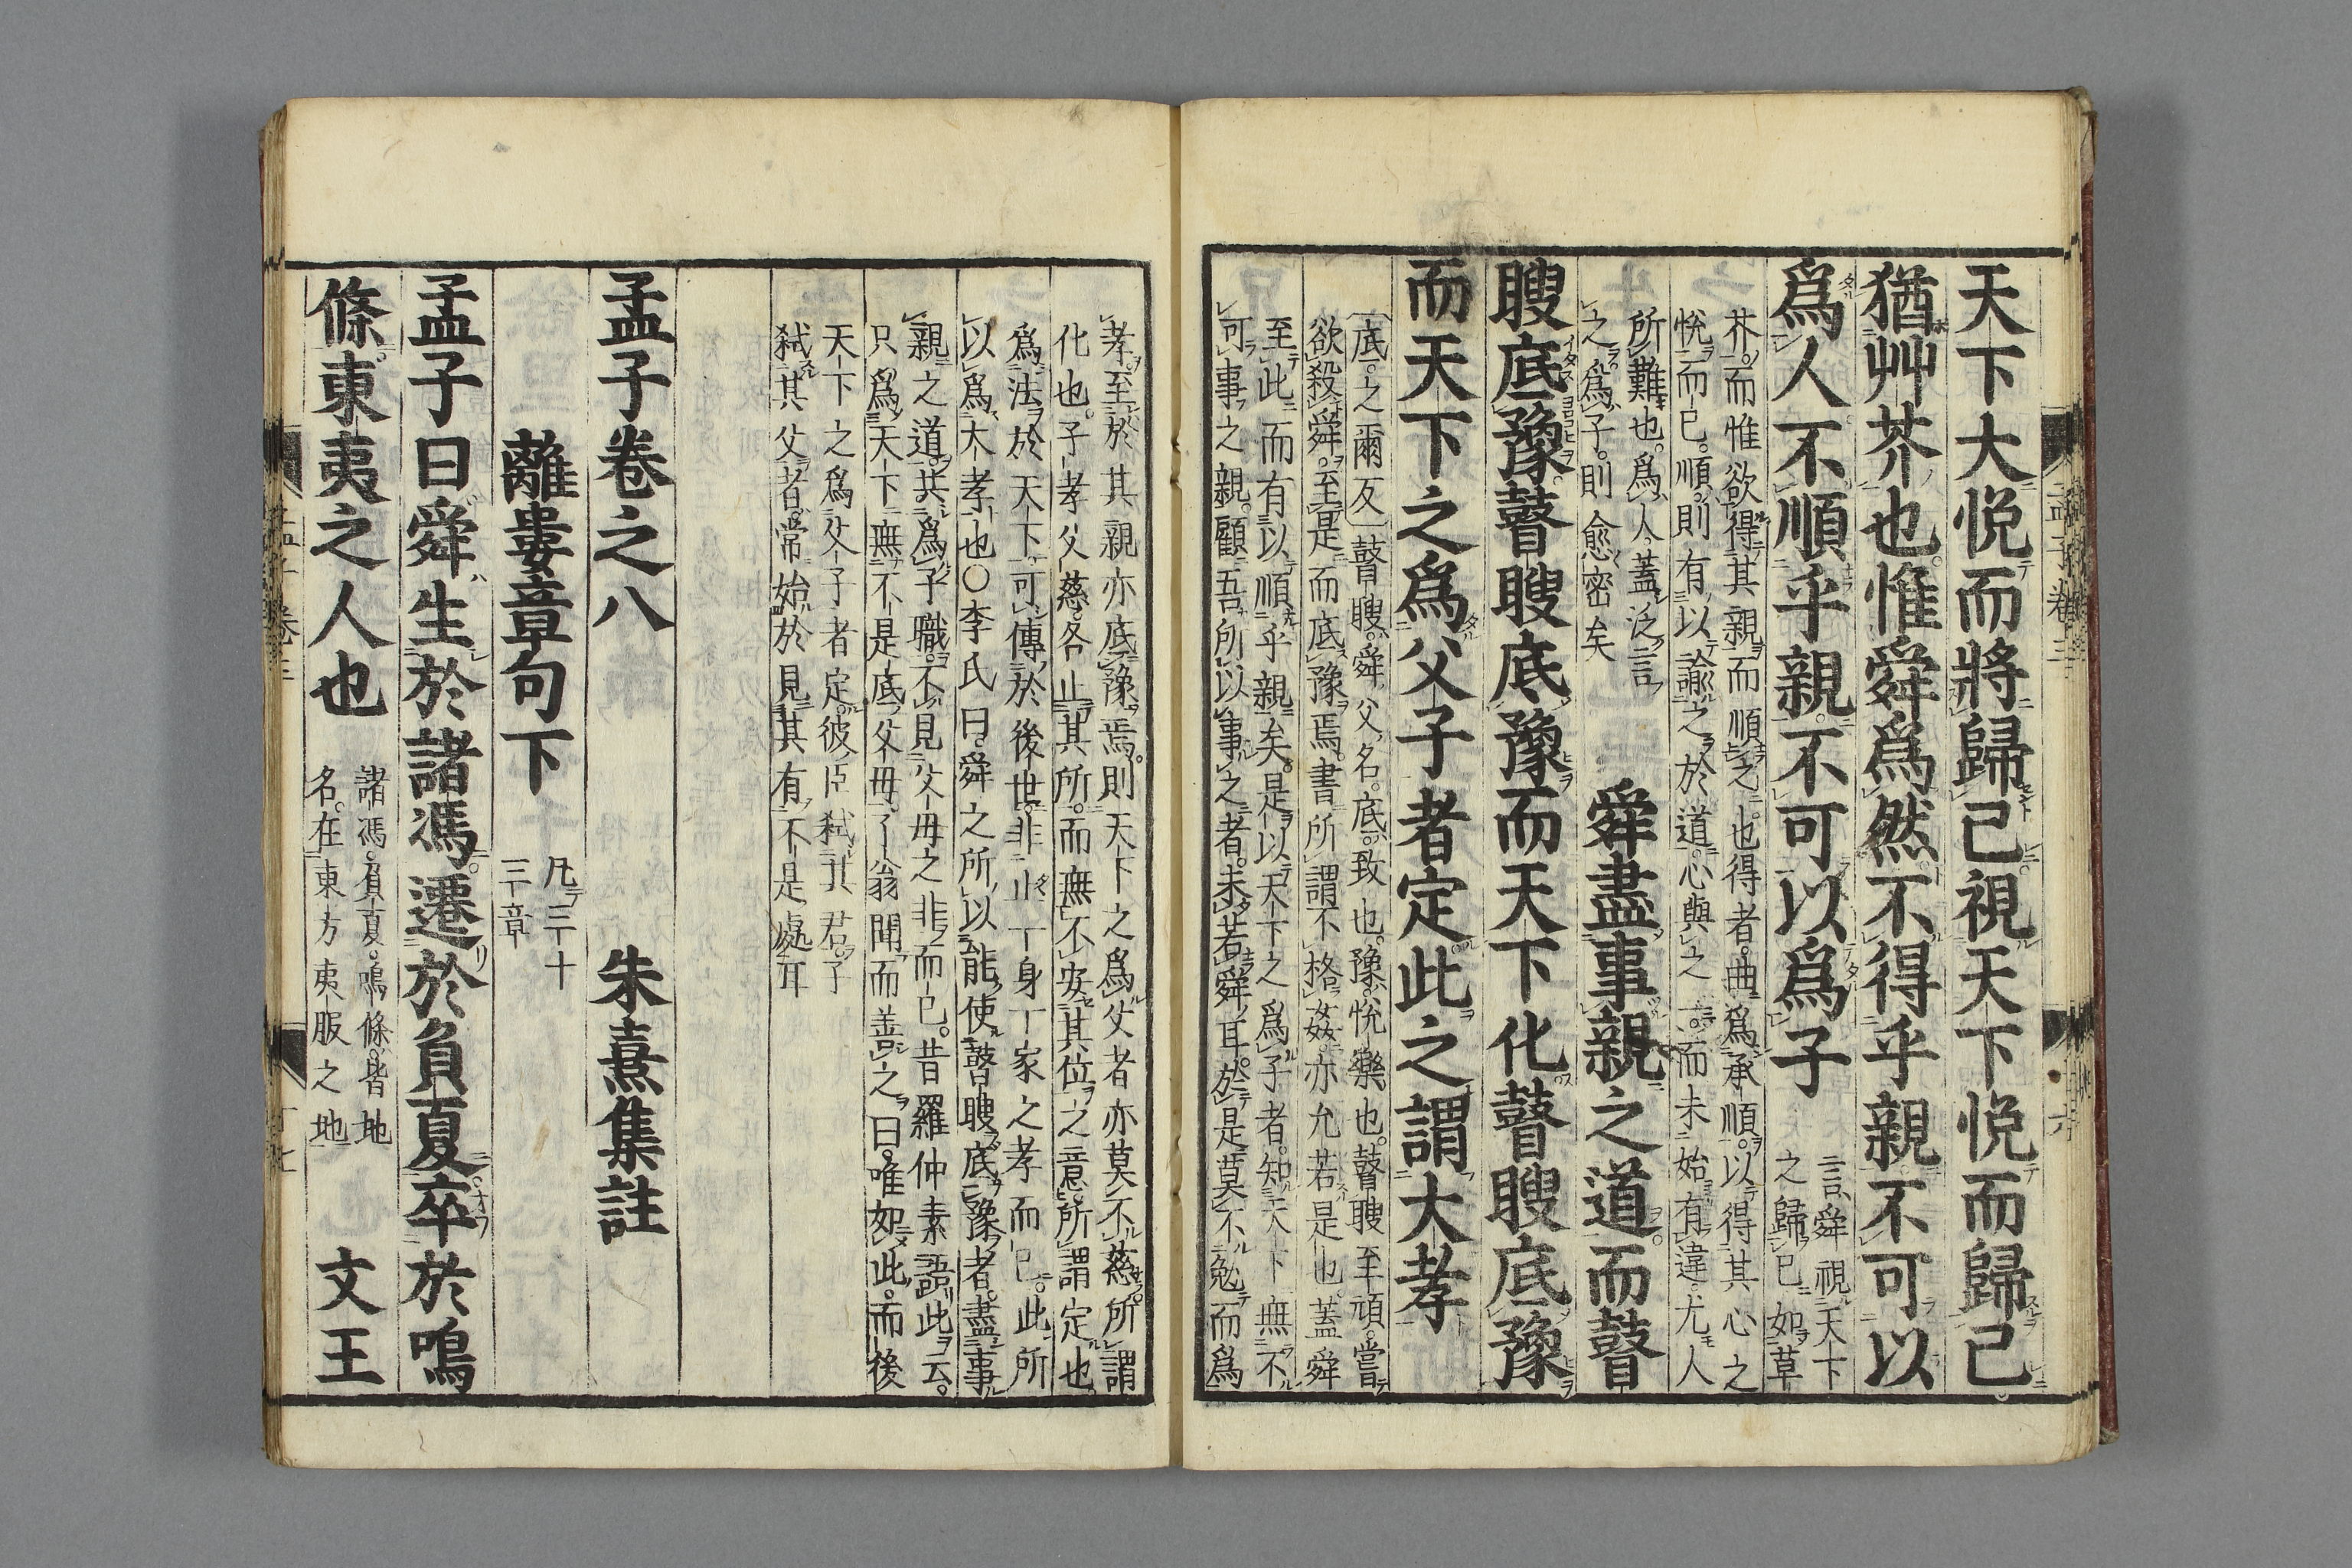 天下大悦而將歸己視天下悦而歸己
猶艸芥也惟舜爲然不得乎親不可以
爲人不順乎親不可以爲子
言舜視天下
之歸己如草
芥而惟欲得其親而順之也得者曲爲承順以得其心之
悦而已順則有以諭之於道心與之一而未始有違尤人
所難也爲人蓋泛言
之爲子則愈密矣
舜盡事親之道而瞽
瞍底豫瞽瞍底豫而天下化瞽瞍底豫
而天下之爲父子者定此之謂大孝
底之爾反瞽瞍舜父名底致也豫悦樂也瞽瞍至頑嘗
欲殺舜至是而底豫焉書所謂不格姦亦允若是也蓋舜
至此而有以順乎親矣是以天下之爲子者知天下無不
可事之親顧吾所以事之者未若舜耳於是莫不勉而爲
孝至於其親亦底豫焉則天下之爲父者亦莫不慈所謂
化也子孝父慈各止其所而無不安其位之意所謂定也
爲法於天下可傳於後世非止一身一家之孝而已此所
以爲大孝也○李氏曰舜之所以能使瞽瞍底豫者盡事
親之道共爲子職不見父母之非而已昔羅仲素語此云
只爲天下無不是底父母了翁聞而善之曰唯如此而後
天下之爲父子者定彼臣弑其君子
弑其父者常始於見其有不是處耳
孟子卷之八
朱熹集註
離婁章句下
凡三十
三章
孟子曰舜生於諸馮遷於負夏卒於鳴
條東夷之人也
諸馮負夏鳴條皆地
名在東方夷服之地
文王